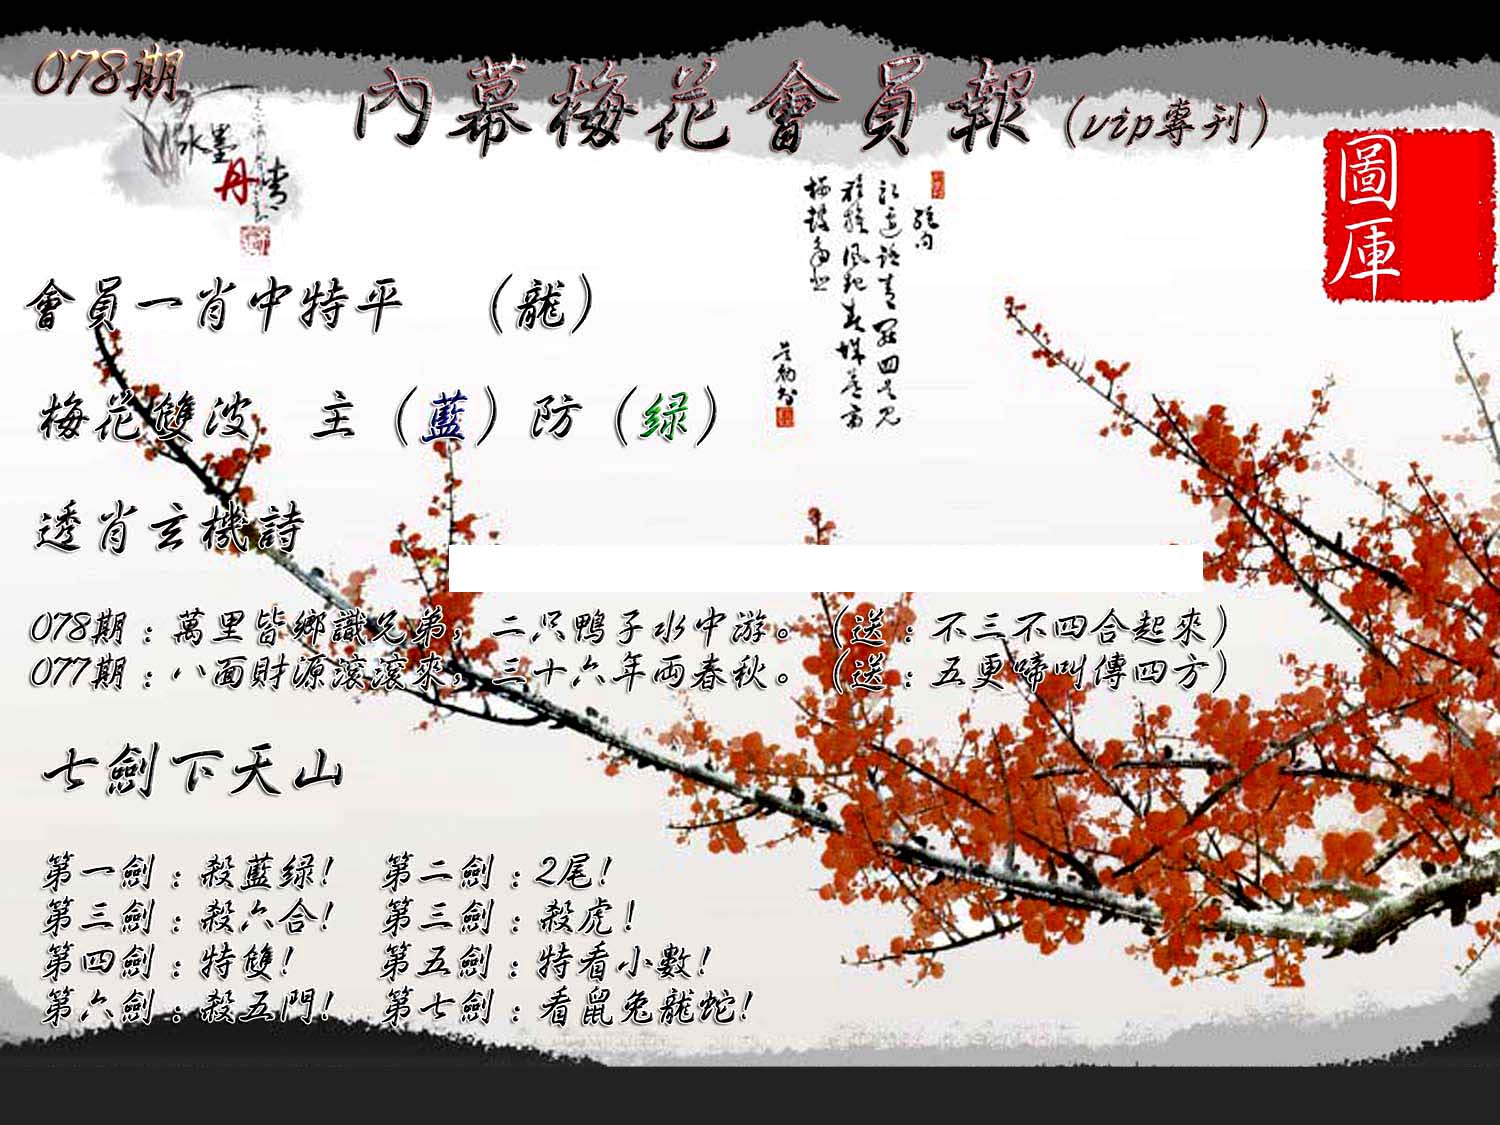 078期
內幕梅花會員報（vip專刊）
水墨
丹青
圖庫
會員一肖中特平　（龍）
梅花雙波　主（藍）防（绿）
透肖玄機詩
078期：萬里皆鄉識兄弟，二只鴨子水中游。（送：不三不四合起來）
077期：八面財源滾滾來，三十六年兩春秋。（送：五更啼叫傳四方）
七劍下天山
第一劍：殺藍绿！　第二劍：2尾！
第三劍：殺六合！　第三劍：殺虎！
第四劍：特雙！　第五劍：特看小數！
第六劍：殺五門！　第七劍：看鼠兔龍蛇！